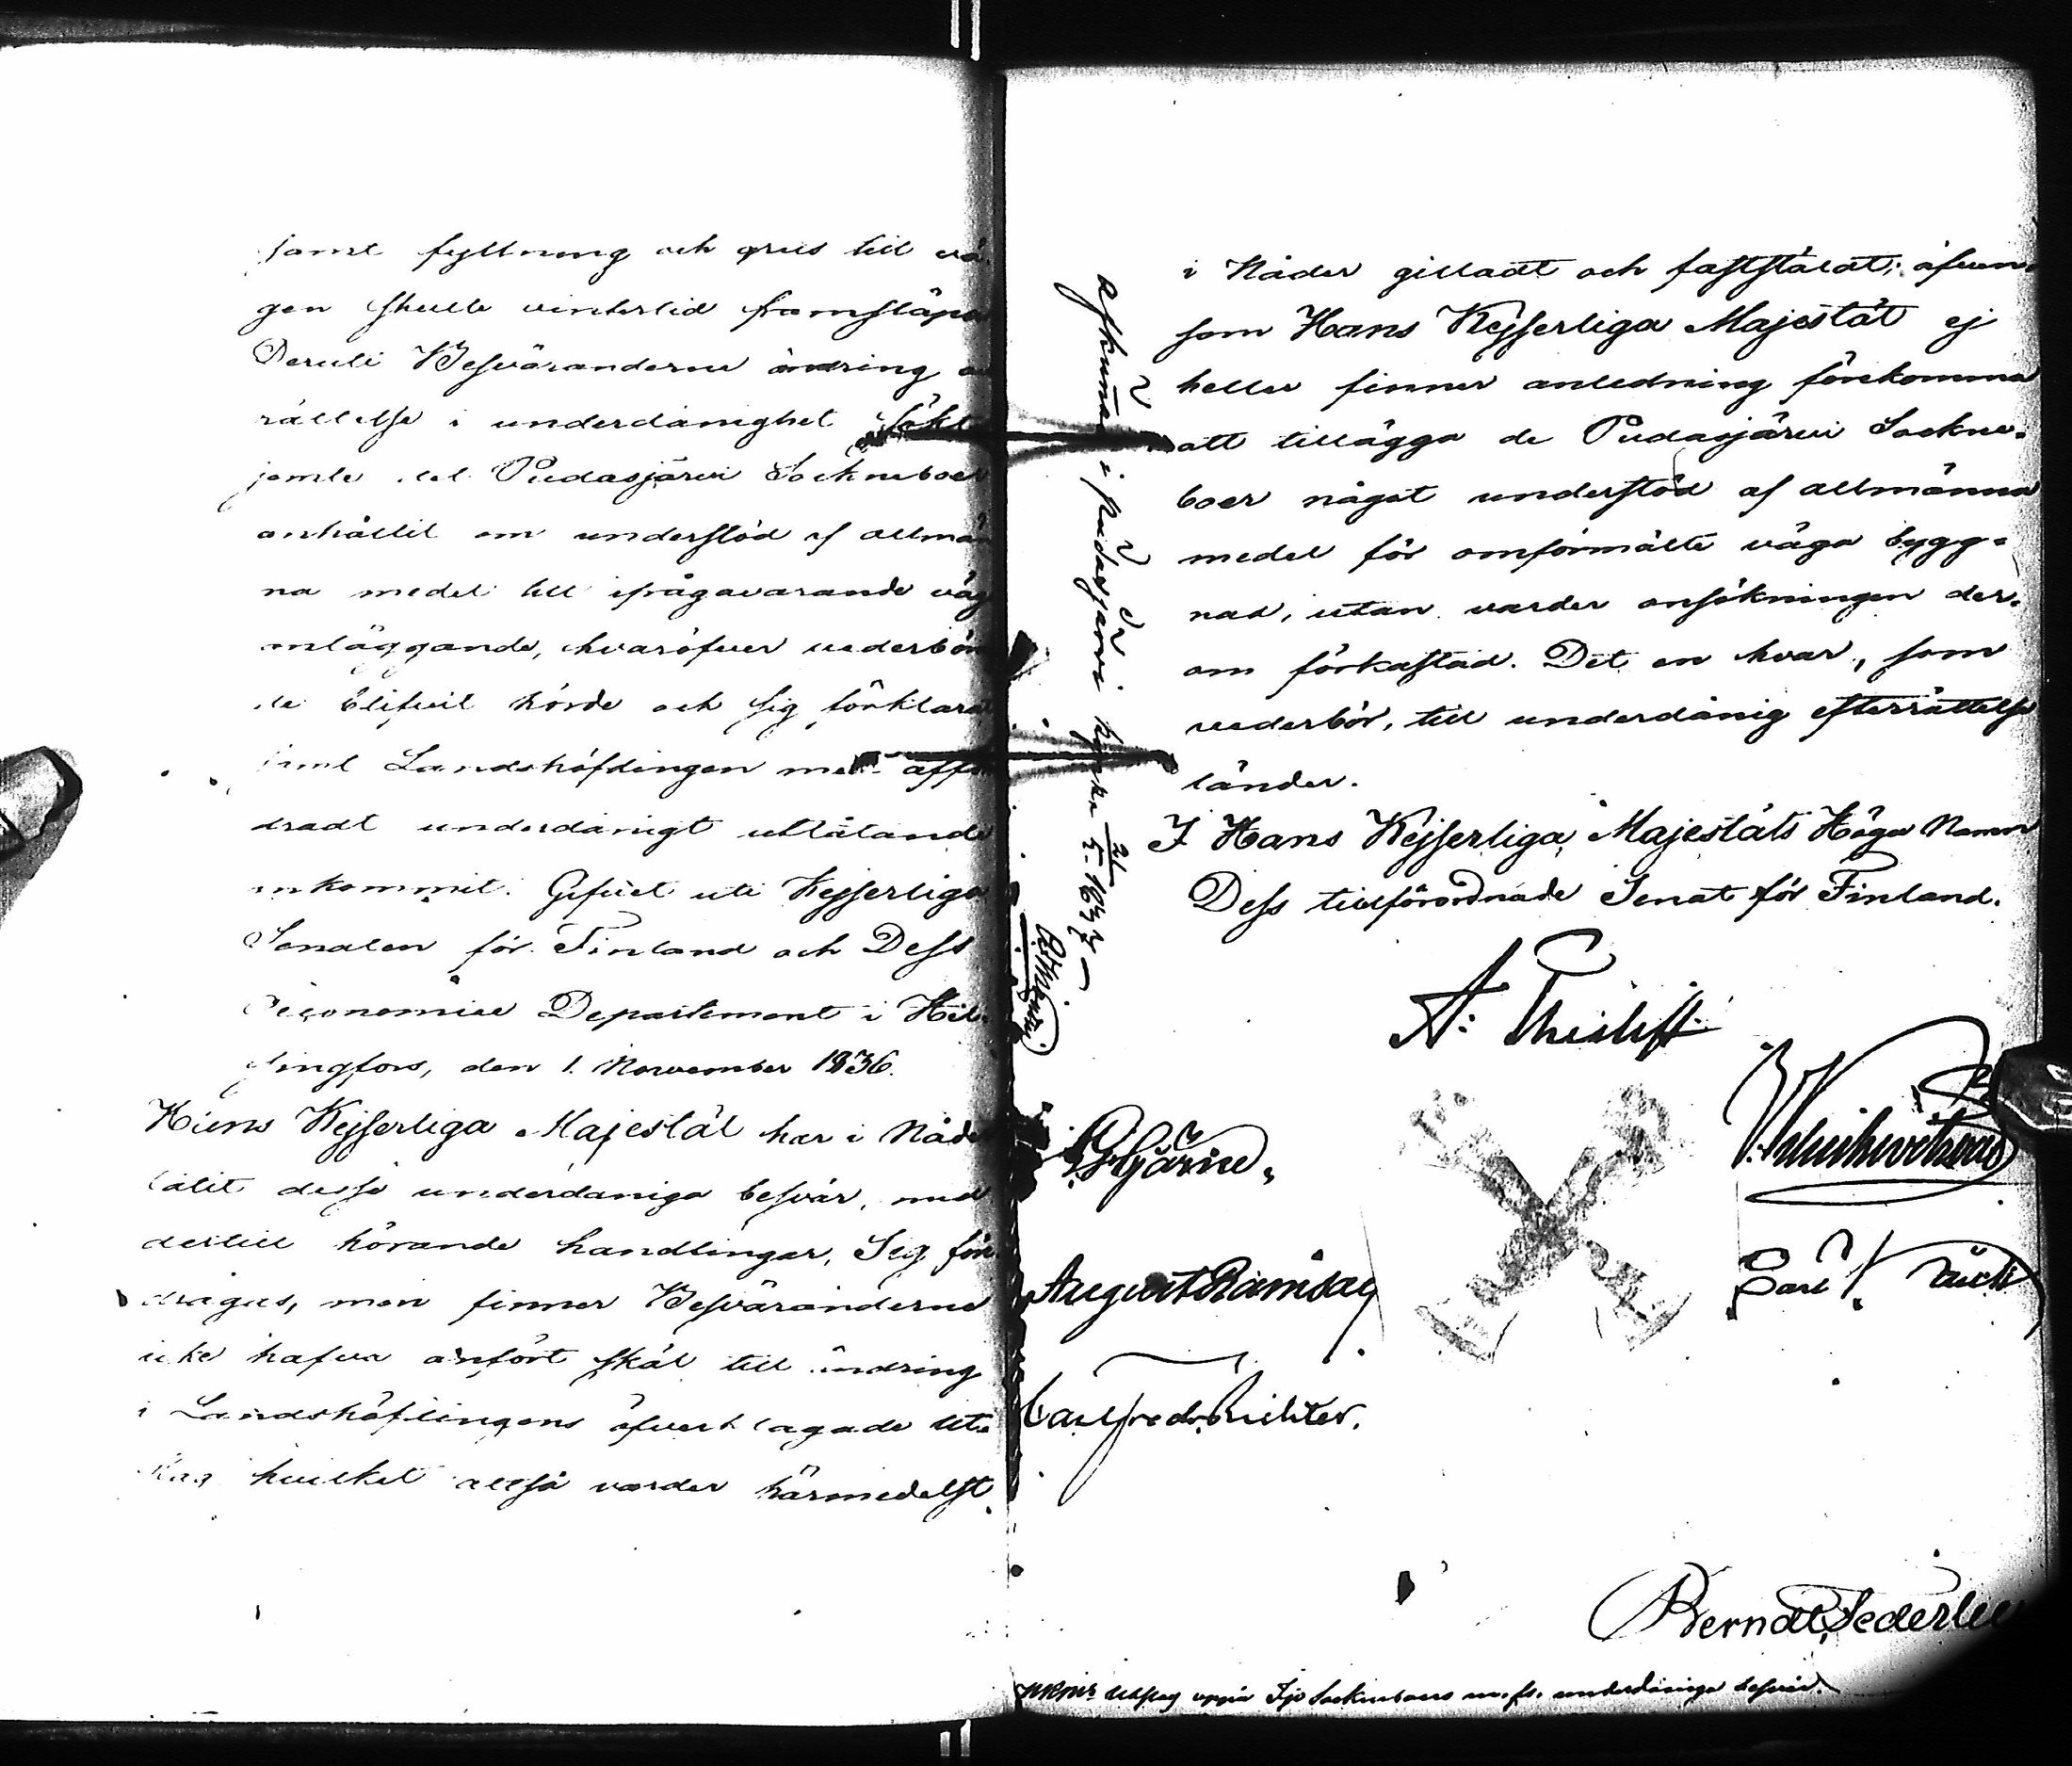 jamt fyllning och grus till vä
gen skulle vintertid framsläpa
Deruti Besväranderne ändring
rättelse i underdånighet sökt
jemte det Pudasjärvi Sockneboer
anhållit om understöd af allmän
na medel till ifrågavarande väg
anläggande, hvaröfver vederbön
de blifvit hörde och sig förklarat
samt Landshöfdingen med affo
dradt underdånigt utlåtande
inkommit. Gifvet uti Kejserliga
Senaten för Finland och Dess
Oeconomiae Departement i Hel
singfors, den 1. November 1836.
Hans Kejserliga Majestät har i Nåder
låtit desse underdåniga besvär, med
dertill hörande handlingar, Sig före
dragas, men finner Besväranderne
icke hafva anfört skäl till ändring
i Landshöfdingens öfverklagade Ut-
slag hvilket altså varder härmedelst
i Nåder gilladt och faststäldt; äfven
som Hans Kejserliga Majestät ej
heller finner anledning förekomma
att tillägga de Pudasjärvi Sockne-
boer något understöd af allmänna
medel för omförmälte väga bygg-
nad, utan varder ansökningen der-
om förkastad. Det en hvar, som
vederbör, till underdånig efterrättelse
länder.
I Hans Kejserliga Majestäts Höga Namn
Dess tillförordnade Senat för Finland.
A: Thesleff
Hjärne
August Ramsay
Carl Fredr. Richter.
Berndt Federley
Afkunnat i Pudasjärvi kyrka 1837
Utslag uppå Ijo Sockneboers m. fl. underdåniga besvär.